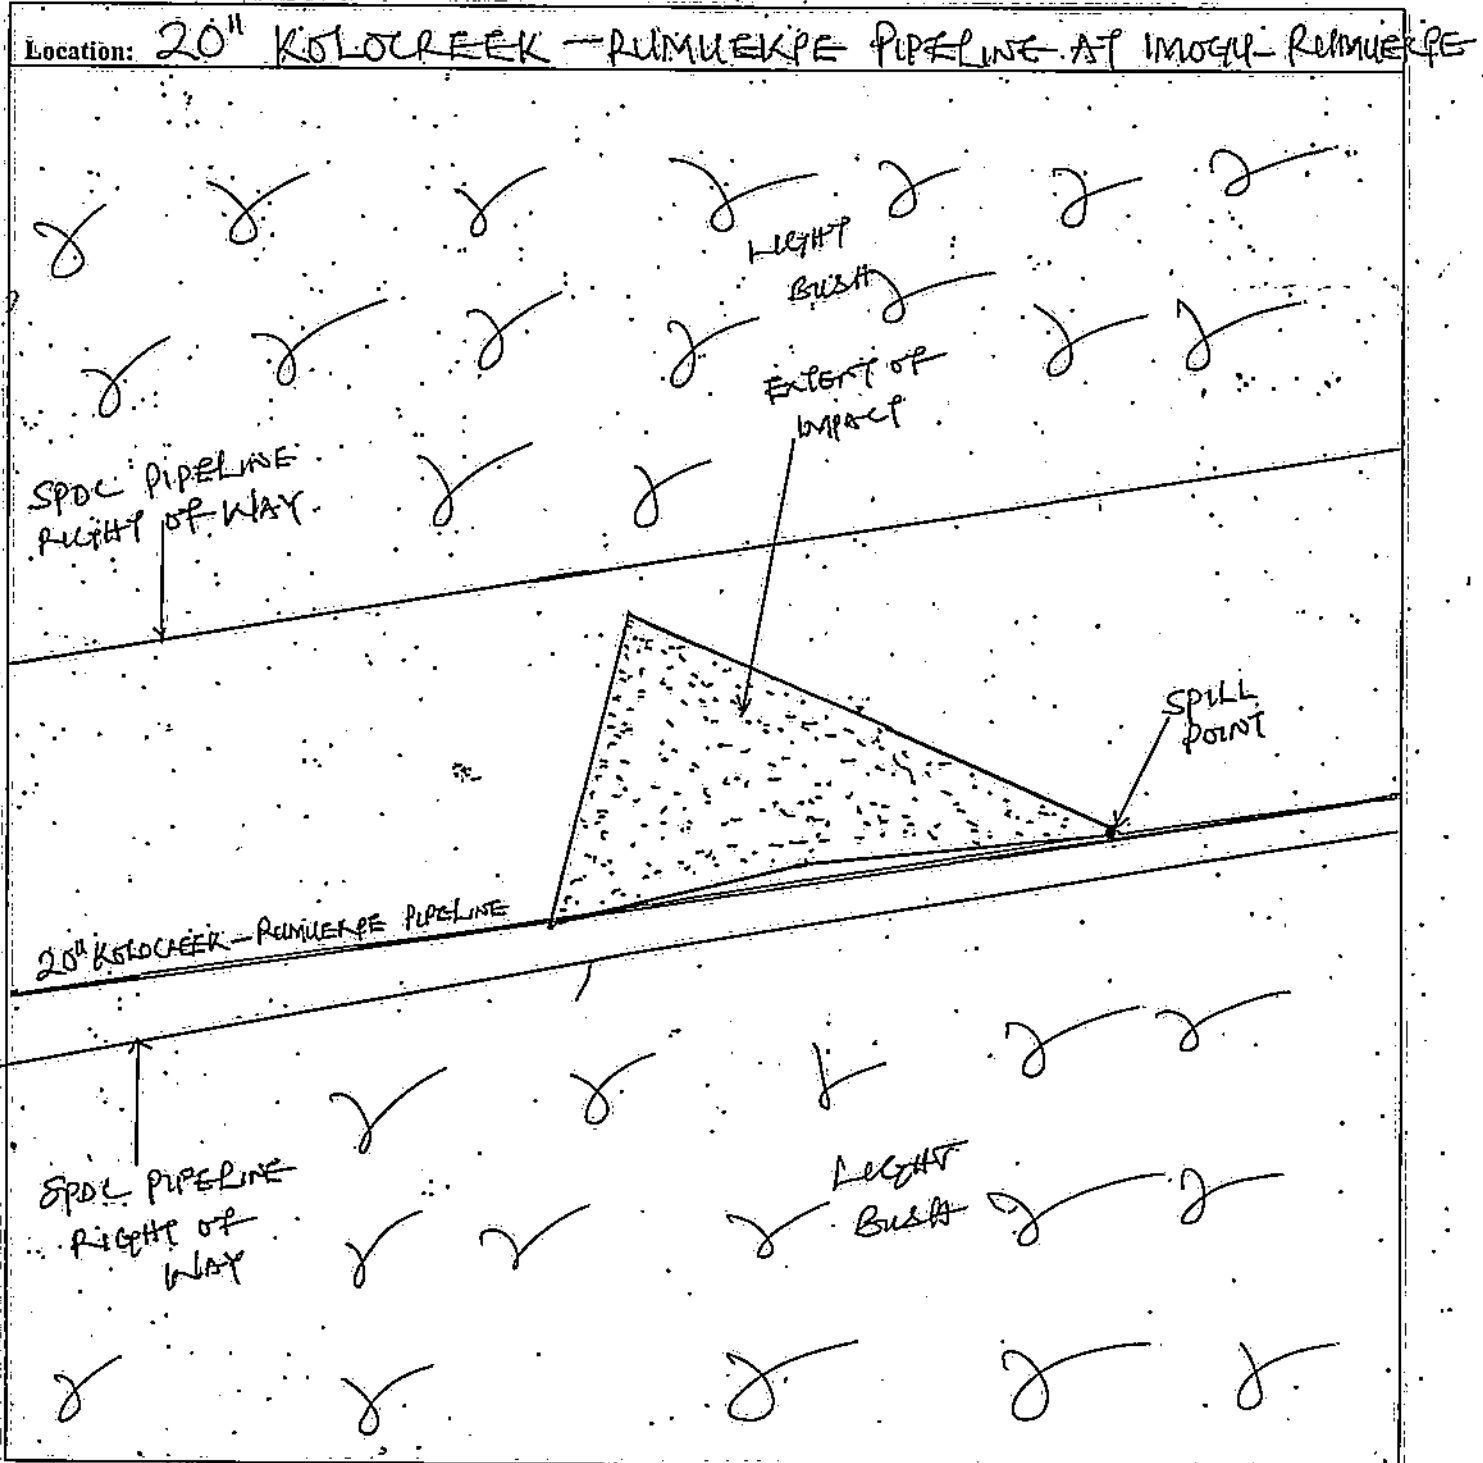 Location: 20" KOLOCREEK - RUMUEKPE PIPELINE AT IMOGU - RUMUEKPE
LIGHT
BUSH
EXTENT OF
IMPACT
SPDC PIPELINE
RIGHT OF WAY.
SPILL
POINT
20" KOLOCREEK - RUMUEKPE PIPELINE
SPDC PIPELINE
RIGHT OF
WAY
LIGHT
BUSH